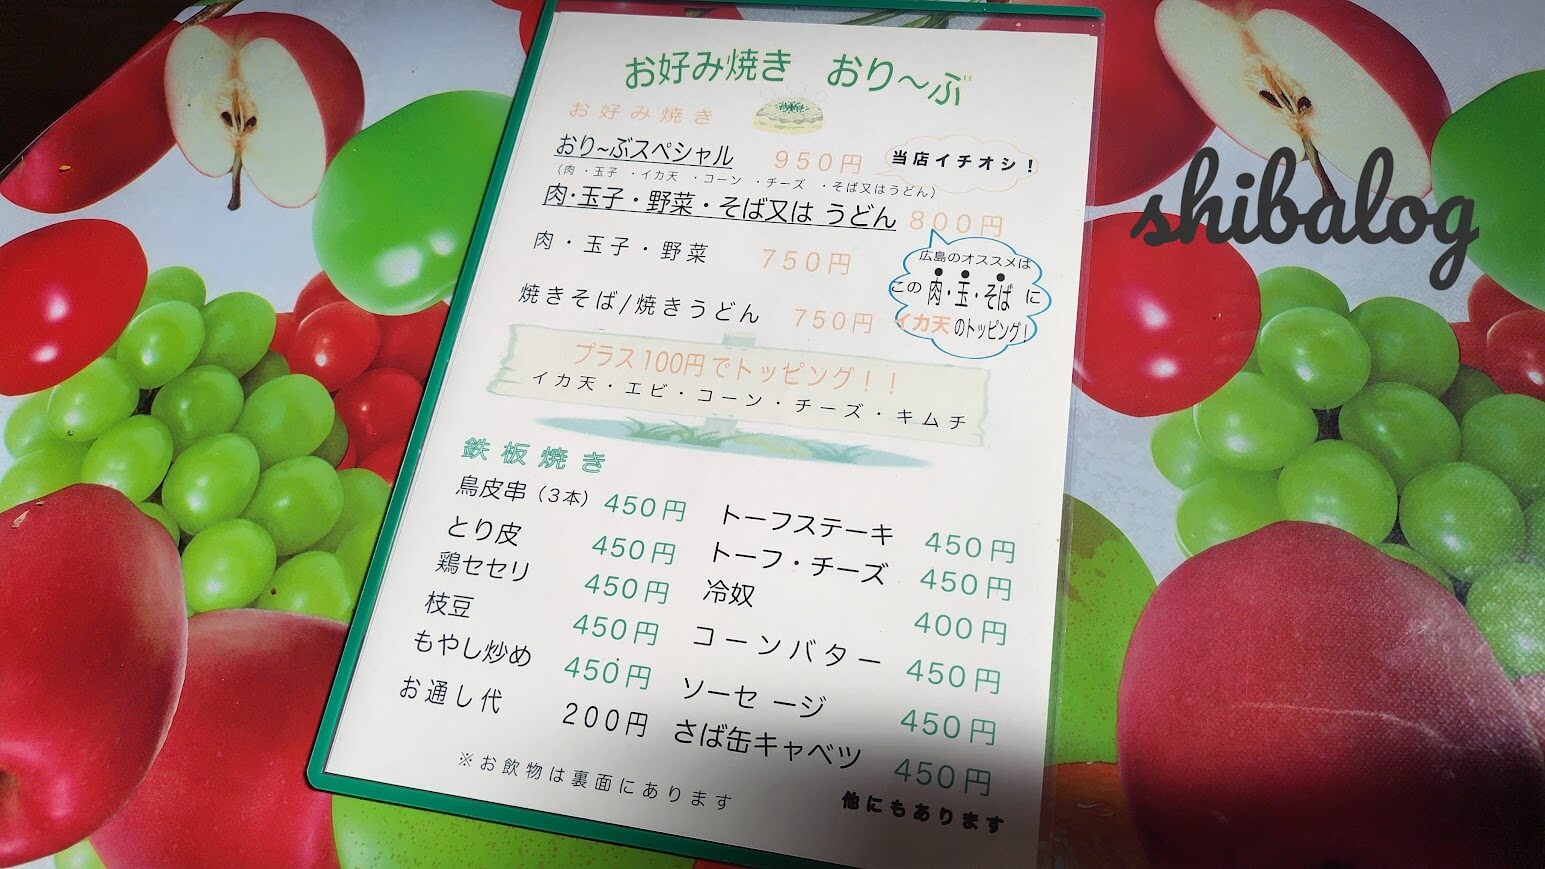 お好み焼き おり～ぶ
お好み焼き
おり~ぶスペシャル 950円 当店イチオシ！
（肉・玉子・イカ天・コーン・チーズ・そば又はうどん）
肉・玉子・野菜・そば又は うどん 800円
肉・玉子・野菜 750円
広島のオススメは
この 肉・玉・そば に
イカ天のトッピング！
焼きそば/焼きうどん 750円
プラス100円でトッピング！！
イカ天・エビ・コーン・チーズ・キムチ
鉄板焼き
鳥皮串（3本） 450円
とり皮 450円
鶏セセリ 450円
枝豆 450円
もやし炒め 450円
お通し代 200円
トーフステーキ 450円
トーフ・チーズ 450円
冷奴 400円
コーンバター 450円
ソーセージ 450円
さば缶キャベツ 450円
※お飲物は裏面にあります
他にもあります
shibalog